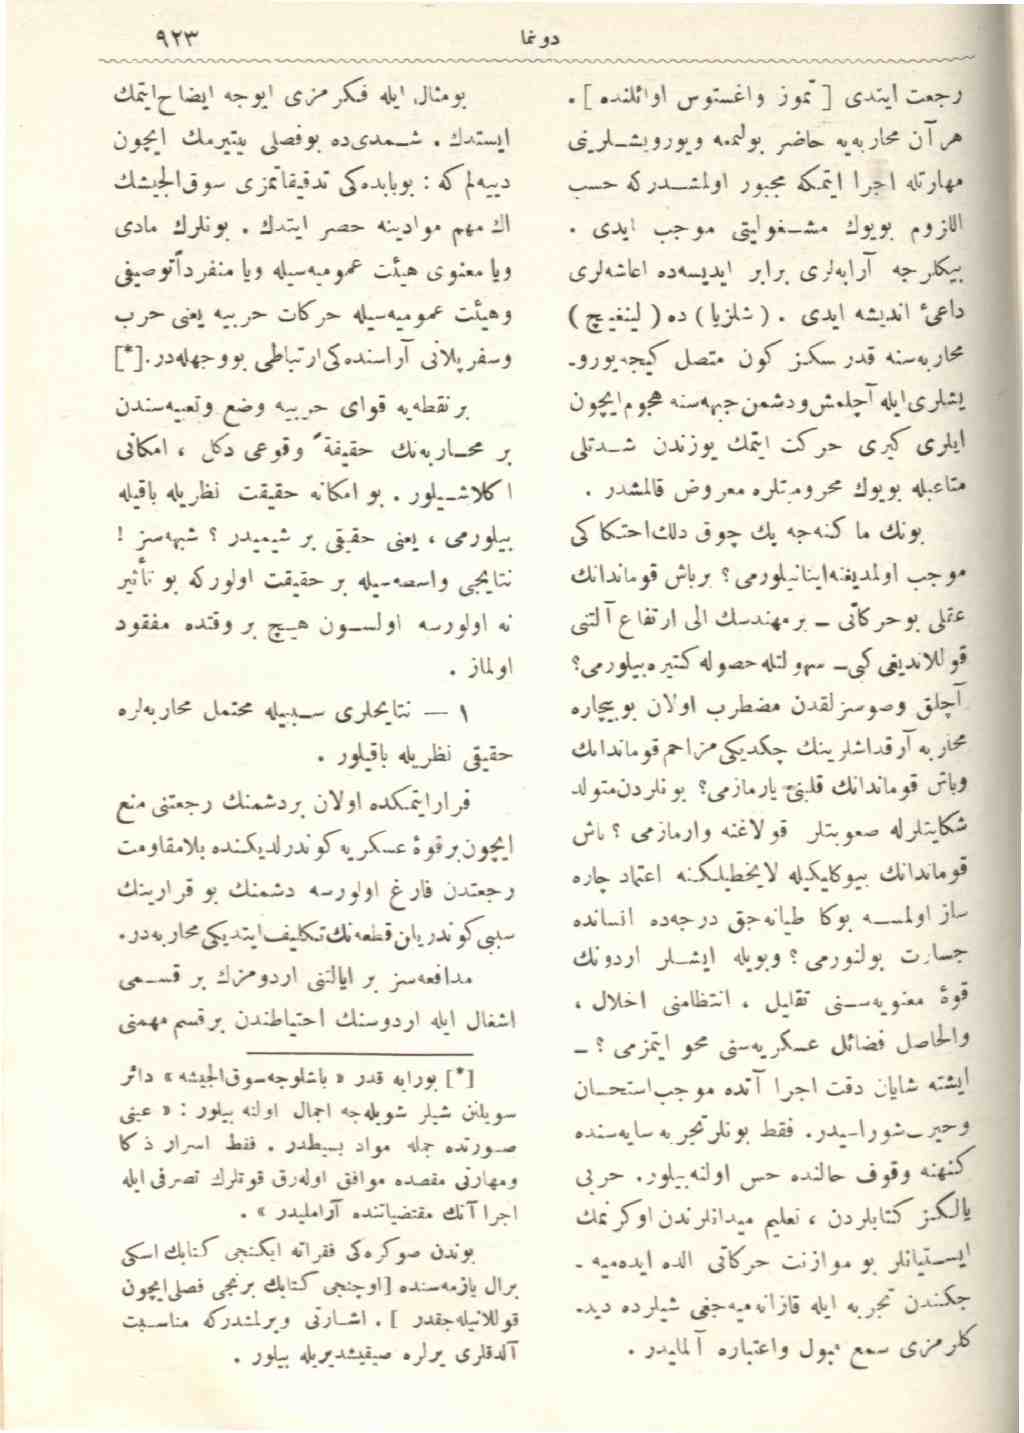 دوننما ٩٢٣
رجعت ایتدی [ تموز واغستوس اوائلنده ] .
هر آن محاربه‌یه حاضر بولنمه ویوروییشلرینی
مهارتله اجرا ایتمکه مجبور اولمشدرکه حسب
اللزوم بویوك مشغولیتی موجب ایدی .
بیکلرجه آرابه‌لری برابر ایدیسه‌ده اعاشه‌لری
داعیٔ اندیشه ایدی . ( شلزیا ) ده ( لیتغیج )
محاربه‌سنه قدر سکز کون متصل کیجه یورو-
یشلری ایله آچلمش ودشمن جبهه‌سنه هجوم ایچون
ایلری کیری حرکت ایتمك یوزندن شدتلی
متاعبله بویوك محرومیتلره معروض قالمشدر .
بونك ما کنه‌جه پك چوق دلك احتکاکی
موجب اولمدیغنه اینانیلورمی ؟ برباش قوماندانك
عقلی بوحرکاتی – برمهندسك الی ارتفاع آلتنی
قوللاندیغی کبی – سهولتله حصوله کتیره بیلورمی ؟
آچلق وصوسزلقدن مضطرب اولان بو بیچاره
محاربه آرقداشلرینك چکدیکی مزاحم قوماندانك
وباش قوماندانك قلبنی یارمازمی ؟ بونلردن متولد
شکایتلرله صعوبتلر قولاغنه وارمازمی ؟ باش
قوماندانك بیوکلیکیله لایخطیلکنه اعتماد چاره
ساز اولمسه بوکا طیانه‌جق درجه‌ده انسانده
جسارت بولنورمی ؟ وبویله ایشلر اردونك
قوۀ معنویه‌سنی تقلیل ، انتظامنی اخلال ،
والحاصل فضائل عسکریه‌سنی محو ایتمزمی ؟ –
ایشته شایان دقت اجرا آتده موجب استحسان
وحیرت شوراسیدر. فقط بونلر تجربه سایه‌سنده
کنهنه وقوف حالنده حس اولنه‌بیلور. حربی
یالکز کتابلردن ، تعلیم میدانلرندن اوکرنمك
ایستیانلر بو موازنت حرکاتی الده ایده‌میه –
جکندن تجربه ایله قازانه‌میه‌جغی شیلرده دید-
کلرمزی سمع قبول واعتباره آلمالیدر .
بومثال ایله فکرمزی ایوجه ایضاح ایتمك
ایستدك . شمدی‌ده بوفصلی بیتیرمك ایچون
دییه‌لم که : بوبابده‌کی تدقیقاتمزی سوق‌الجیشك
اك مهم موادینه حصر ایتدك . بونلرك مادی
ویا معنوی هیئت عمومیه‌سیله ویا منفرداً توصیفی
وهیئت عمومیه‌سیله حرکات حربیه یعنی حرب
وسفر پلانی آراسنده‌کی ارتباطی بووجهله‌در.[*]
بر نقطه‌یه قوای حربیه وضع وتعبیه‌سندن
بر محاربه‌نك حقیقةً وقوعی دکل ، امکانی
اکلاشیلور . بو امکانه حقیقت نظریله باقیله
بیلورمی ، یعنی حقیقی بر شیمیدر ؟ شبهه‌سز !
نتایجی واسطه‌سیله بر حقیقت اولورکه بو تأثیر
نه اولورسه اولسون هیچ بر وقتده مفقود
اولماز .
١ — نتایجلری سببیله محتمل محاربه‌لره
حقیقی نظریله باقیلور .
فرار ایتمکده اولان بردشمنك رجعتنی منع
ایچون برقوۀ عسکریه کوندرلدیکنده بلامقاومت
رجعتدن فارغ اولورسه دشمنك بو قرارینك
سببی کوندریلن قطعه‌نك تکلیف ایتدیکی محاربه‌در.
مدافعه‌سز بر ایالتنی اردومزك بر قسمی
اشغال ایله اردوسنك احتیاطندن برقسم مهمنی
[*] بورایه قدر « باشلوجه سوق‌الجیشه » دائر
سویلنن شیلر شویله‌جه اجمال اولنه بیلور : « عینی
صورتده جمله مواد بسیطدر . فقط اسرار ذکا
ومهارتی مقصده موافق اوله‌رق قوتلرك تصرفی ایله
اجرا آنك مقتضیاتنده آراملیدر » .
بوندن صوکره‌کی فقراته ایکنجی کتابك اسکی
برال یازمه‌سنده [اوچنجی کتابك برنجی فصلی ایچون
قوللانیله‌جقدر ] . اشارتی ویرلمشدرکه مناسبت
آلدقلری یرلره صیقیشدیریله بیلور .